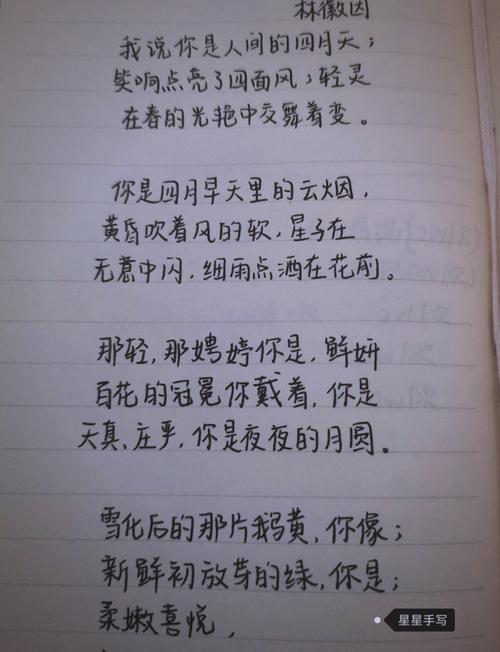 林徽因
我说你是人间的四月天；
笑响点亮了四面风；轻灵
在春的光艳中交舞着变。
你是四月早天里的云烟，
黄昏吹着风的软，星子在
无意中闪，细雨点洒在花前。
那轻，那娉婷你是，鲜妍
百花的冠冕你戴着，你是
天真、庄严，你是夜夜的月圆。
雪化后的那片鹅黄，你像；
新鲜初放芽的绿，你是；
柔嫩喜悦，
星星手写